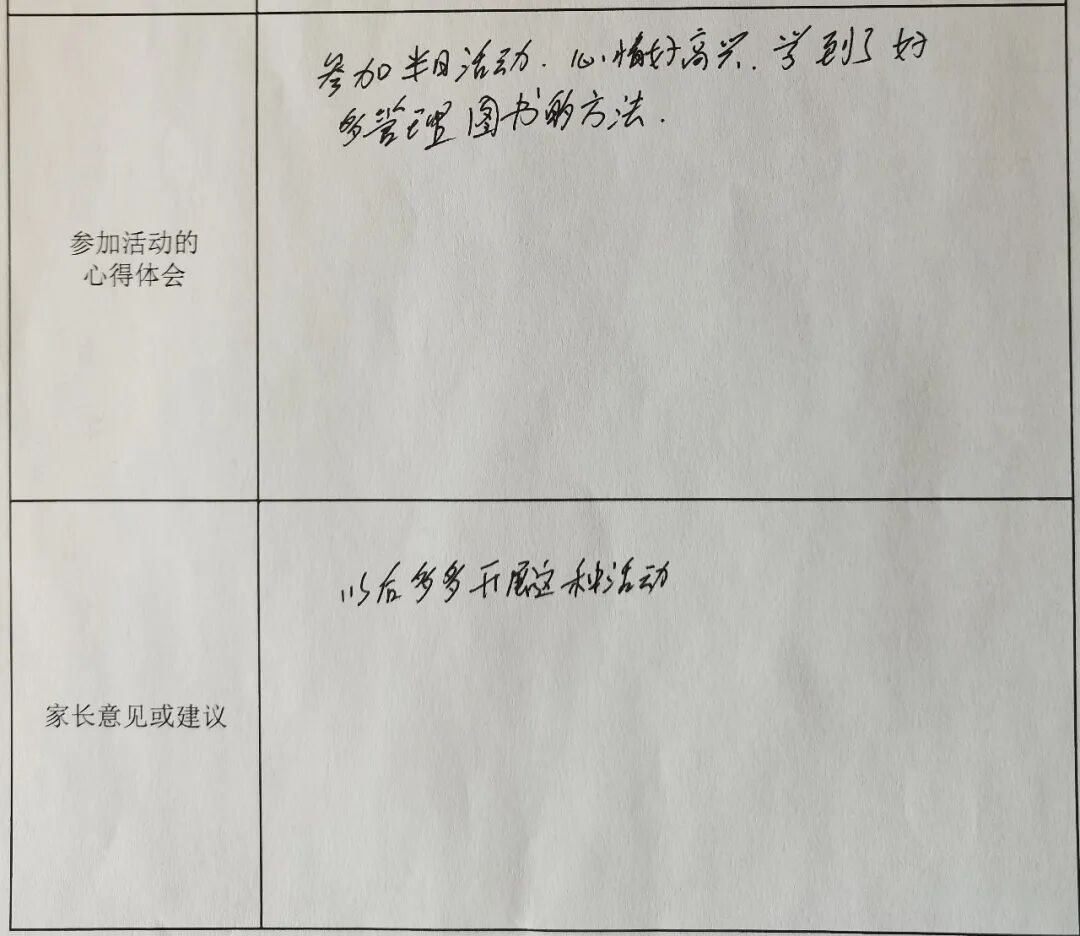 参加半日活动.心情好高兴.学到了好
多管理图书的方法.
参加活动的
心得体会
以后多多开展这种活动
家长意见或建议